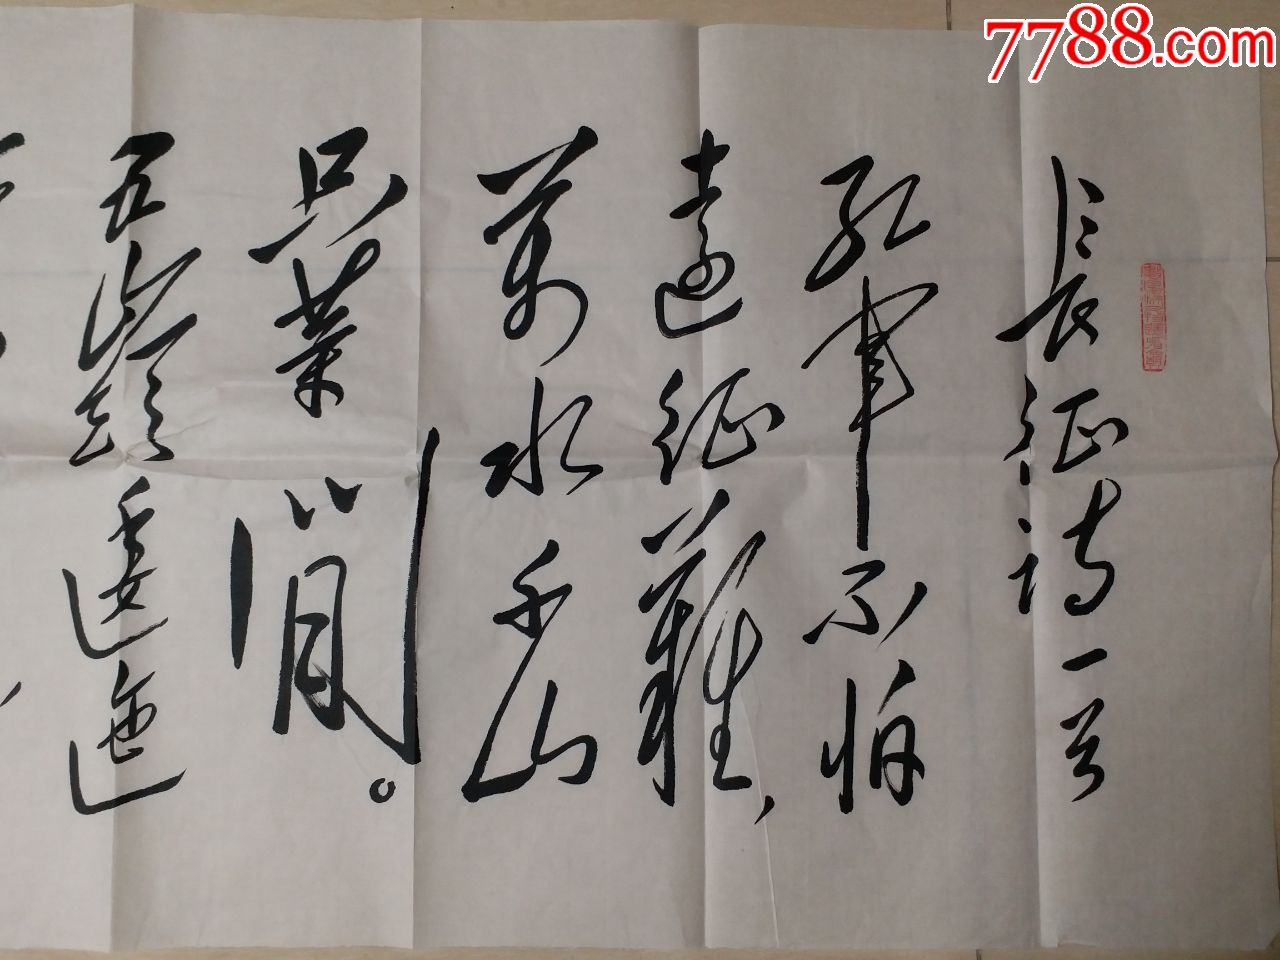 7788.com
長征詩一首
紅軍不怕
遠征難，
萬水千山
只等閒。
五嶺逶迤